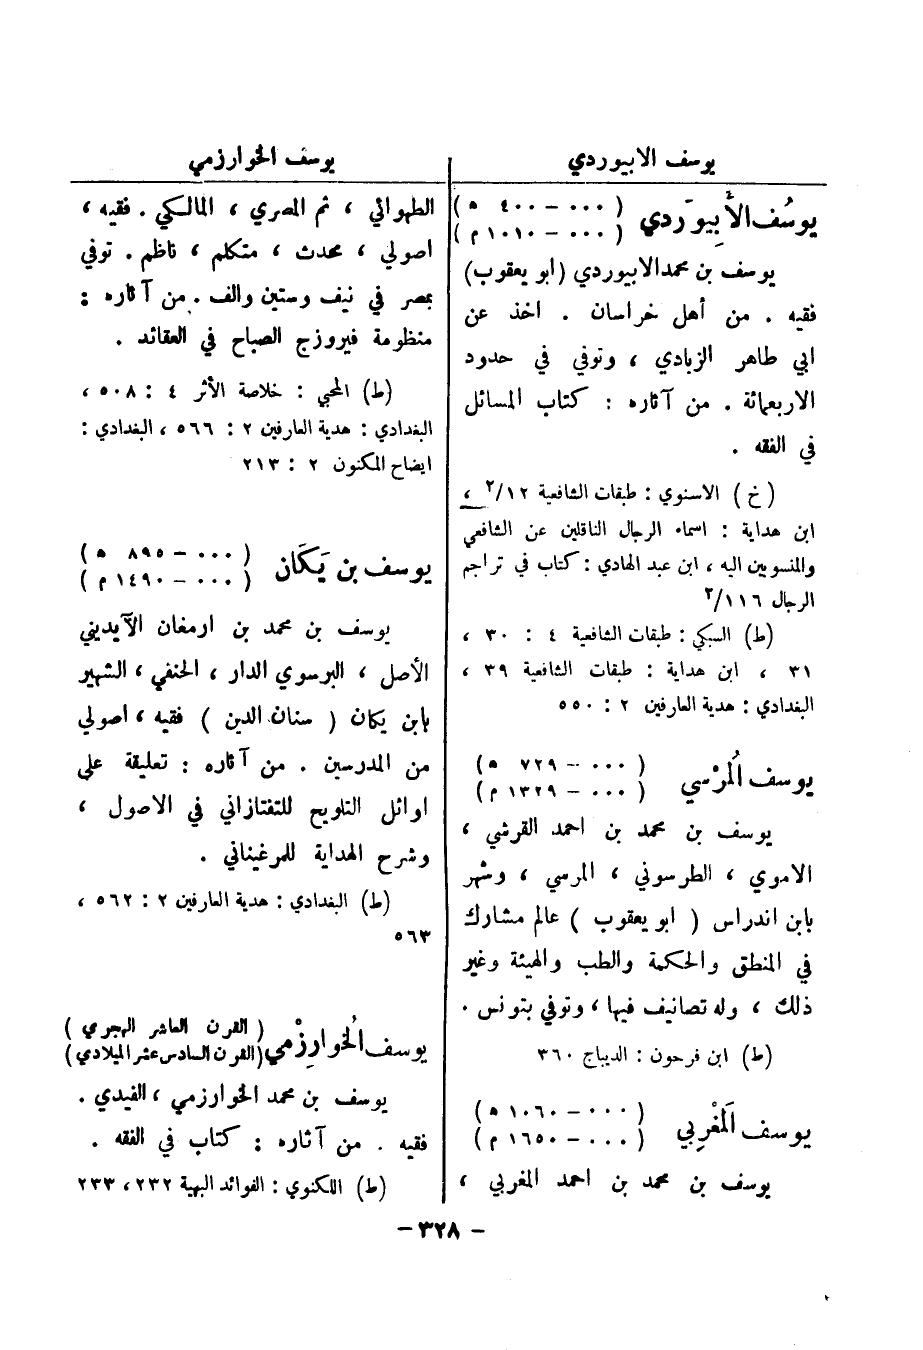 يوسف الابيوردي
يوسُف الأَبِيوَردي ( ٠٠٠ – ٤٠٠ ه )
( ٠٠٠ – ١٠١٠ م )
يوسف بن محمد الابيوردي (ابو يعقوب)
فقيه . من أهل خراسان . اخذ عن
ابي طاهر الزبادي ، وتوفي في حدود
الاربعمائة . من آثاره : كتاب المسائل
في الفقه .
(خ) الاسنوي : طبقات الشافعية ١٢/٢ ،
ابن هداية : اسماء الرجال الناقلين عن الشافعي
والمنسوبين اليه ، ابن عبد الهادي : كتاب في تراجم
الرجال ١١٦/٢
(ط) السبكي : طبقات الشافعية ٤ : ٣٠ ،
٣١ ، ابن هداية : طبقات الشافعية ٣٩ ،
البغدادي : هدية العارفين ٢ : ٥٥٠
يوسف المُرْسي ( ٠٠٠ – ٧٢٩ ه )
( ٠٠٠ – ١٣٢٩ م )
يوسف بن محمد بن احمد القرشي ،
الاموي ، الطرسوني ، المرسي ، وشهر
بابن اندراس ( ابو يعقوب ) عالم مشارك
في المنطق والحكمة والطب والهيئة وغير
ذلك ، وله تصانيف فيها ، وتوفي بتونس .
(ط) ابن فرحون : الديباج ٣٦٠
يوسف المَغْرِبي ( ٠٠٠ – ١٠٦٠ ه )
( ٠٠٠ – ١٦٥٠ م )
يوسف بن محمد بن احمد المغربي ،
يوسف الخوارزمي
الطهوائي ، ثم المصري ، المالكي . فقيه ،
اصولي ، محدث ، متكلم ، ناظم . توفي
بمصر في نيف وستين والف . من آثاره :
منظومة فيروزج الصباح في العقائد .
(ط) المحبي : خلاصة الأثر ٤ : ٥٠٨ ،
البغدادي : هدية العارفين ٢ : ٥٦٦ ، البغدادي :
ايضاح المكنون ٢ : ٢١٣
يوسف بن يَكَان ( ٠٠٠ – ٨٩٥ ه )
( ٠٠٠ – ١٤٩٠ م )
يوسف بن محمد بن ارمغان الآيديني
الأصل ، البرسوي الدار ، الحنفي ، الشهير
بابن يكان ( سنان الدين ) فقيه ، اصولي
من المدرسين . من آثاره : تعليقة على
اوائل التلويح للتفتازاني في الاصول ،
وشرح الهداية للمرغيناني .
(ط) البغدادي : هدية العارفين ٢ : ٥٦٢ ،
٥٦٣
يوسف الخُوارِزْمي ( القرن العاشر الهجري )
( القرن السادس عشر الميلادي )
يوسف بن محمد الخوارزمي ، الفيدي .
فقيه . من آثاره : كتاب في الفقه .
(ط) اللكنوي : الفوائد البهية ٢٣٢ ، ٢٣٣
– ٣٢٨ –